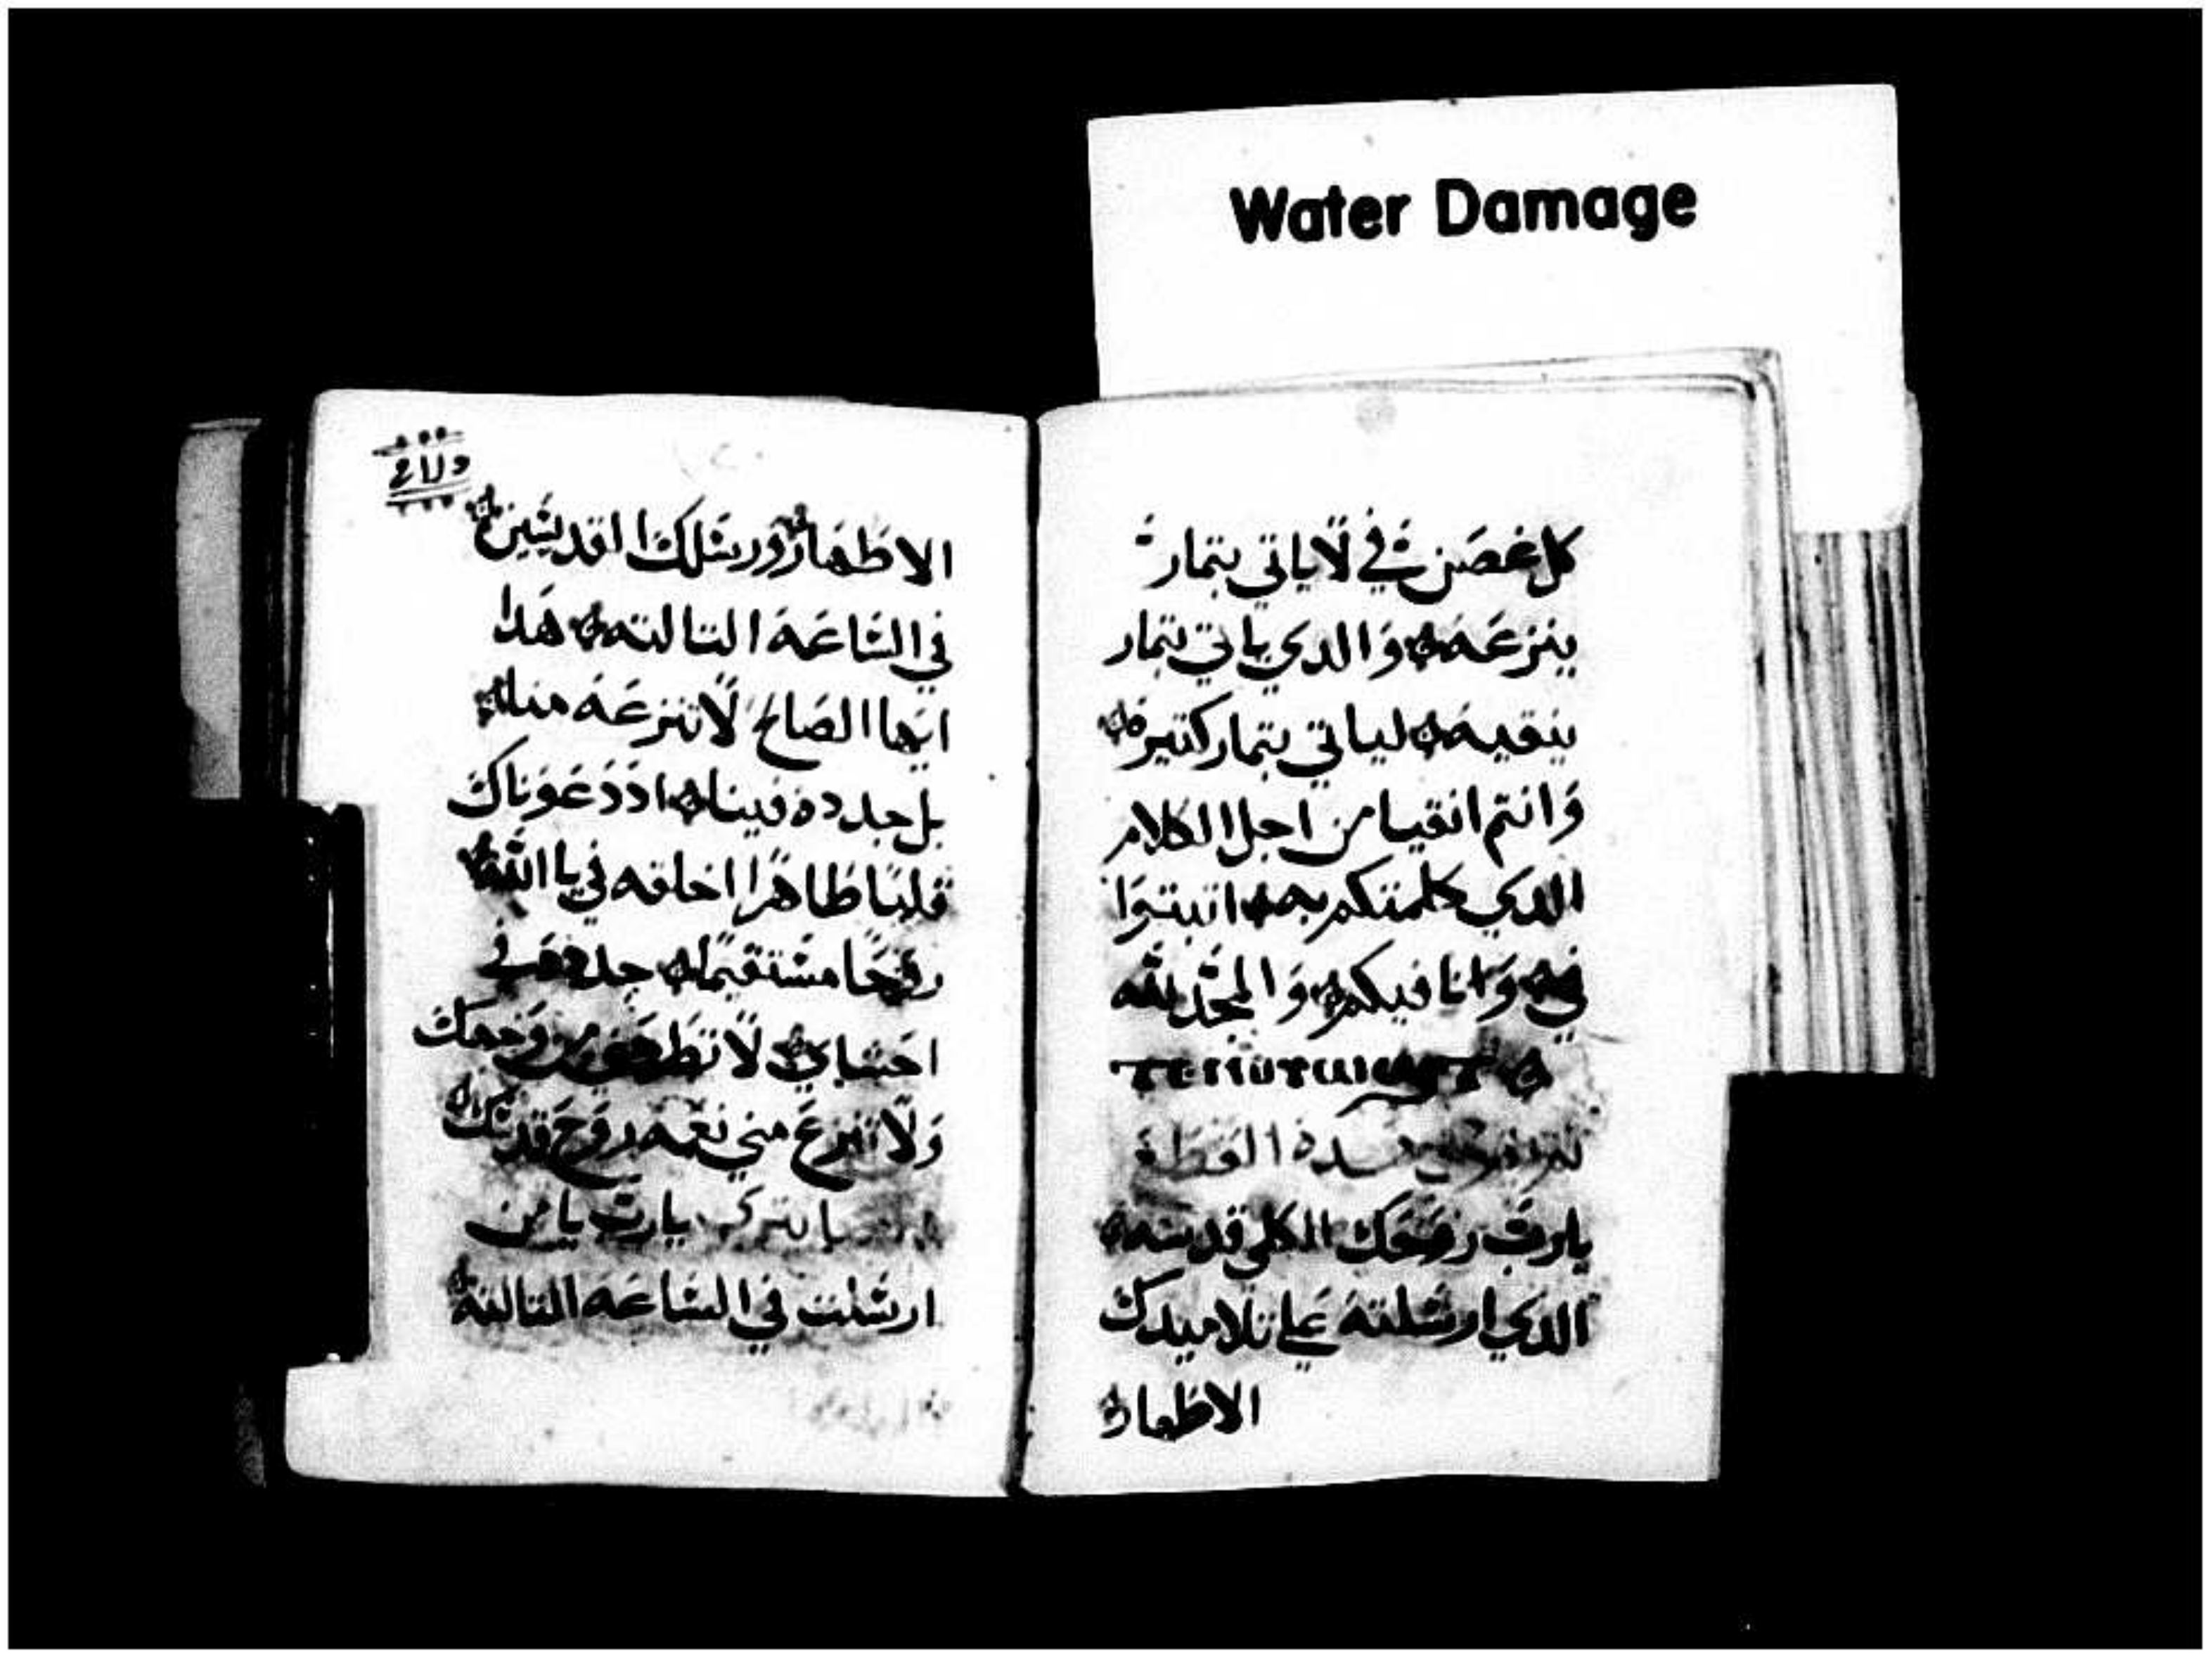 Water Damage
كل غصن في لا ياتي بتمار
ينزعه والدي ياتي بتمار
ينقيه لياتي بتمار كتيره
وانتم انقيا من اجل الكلام
الدي كلمتكم به اتبتوا
في وانا فيكم والمجد لله
يارب روحك الكلي قدسه
الدي ارسلته علي تلاميدك
الاطهار
الاطهار ورسلك القديسين
في الساعه التالته هدا
ايها الصالح لا تنزعه منا
بل جدده فينا دعوناك
قلبا طاهرا اخلقه في يا الله
روحا مستقيما جدده في
احشاي لا تطرحني من وجهك
ولا تنزع مني نعمه روح قدسك
يارب يا من
ارسلت في الساعه التالته